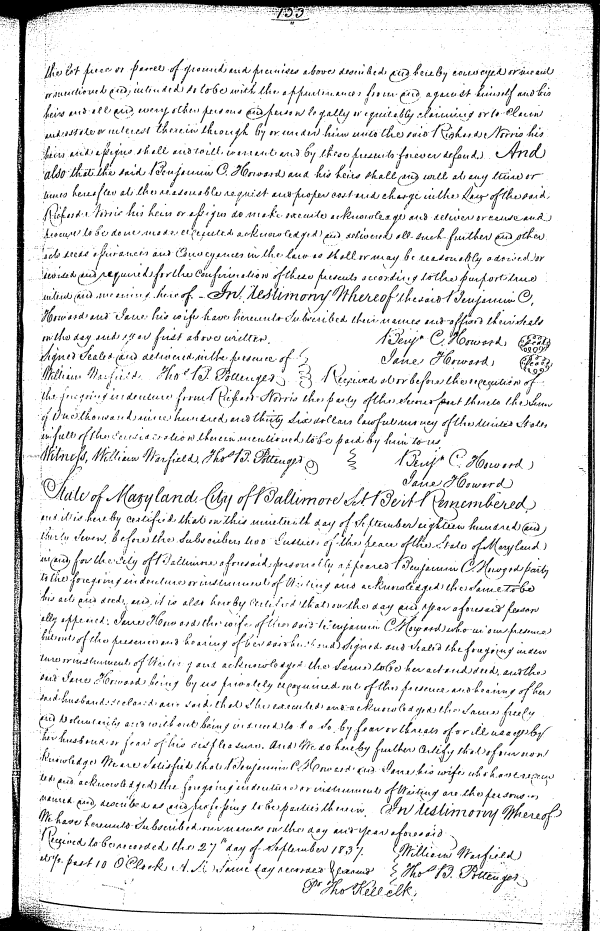 133
the lot piece or parcel of ground and premises above described and hereby conveyed or meant
or mentioned and intended so to be with the appurtenances from and against himself and his
heirs and all and every other persons and person legally or equitably claiming or to claim
and estate or interest therein through by or under him unto the said Richard Norris his
heirs and assigns shall and will warrant and by these presents forever defend. And
also that the said Benjamin C. Howard and his heirs shall and will at any time or
times hereafter at the reasonable request and proper cost and charge in the Law of the said
Richard Norris his heirs or assigns do make execute acknowledge and deliver or cause and
procure to be done made executed acknowledged and delivered all such further and other
acts deeds assurances and conveyances in the law as shall or may be reasonably advised or
devised and required for the confirmation of these presents according to the purport true
intent and meaning hereof. In testimony Whereof the said Benjamin C.
Howard and Jane his wife have hereunto Subscribed their names and affixed their Seals
on the day and year first above written. Benjn C. Howard (Seal)
Signed Sealed and delivered in the presence of Jane Howard (Seal)
William Warfield. Thos B. Pottenger Received at or before the execution of
the foregoing indenture from Richard Norris the party of the Second part thereto the Sum
of One thousand nine hundred and thirty Six dollars lawful money of the United States
in full of the consideration therein mentioned to be paid by him to us
Witness, William Warfield, Thos B. Pottenger Benjn C. Howard
Jane Howard
State of Maryland City of Baltimore Sct Be it Remembered
and it is hereby certified that on this nineteenth day of September eighteen hundred and
thirty Seven, before the Subscribers two Justices of the peace of the State of Maryland
in and for the City of Baltimore aforesaid personally appeared Benjamin C. Howard party
to the foregoing indenture or instrument of Writing and acknowledged the Same to be
his act and deed, and it is also hereby Certified that on the day and year aforesaid person
ally appeared Jane Howard the wife of the said Benjamin C. Howard who in our presence
but out of the presence and hearing of her said husband signed and Sealed the foregoing inden
ture or instrument of Writing and acknowledged the Same to be her act and deed, and the
said Jane Howard being by us privately examined out of the presence and hearing of her
said husband declared and said that She executed and acknowledged the Same freely
and Voluntarily and without being induced to do so by fear or threats of or ill usage by
her husband or fear of his displeasure. And We do hereby further Certify that of our own
knowledge We are Satisfied that Benjamin C. Howard and Jane his wife who have execu
ted and acknowledged the foregoing indenture or instrument of Writing are the persons
named and described as and professing to be parties therein. In testimony Whereof
We have hereunto Subscribed our names on the day and year aforesaid
Received to be recorded the 27th day of September 1837. William Warfield
at past 10 O'Clock A.M. Same day recorded & examd Thos B. Pottenger
Pr Thos Kell clk